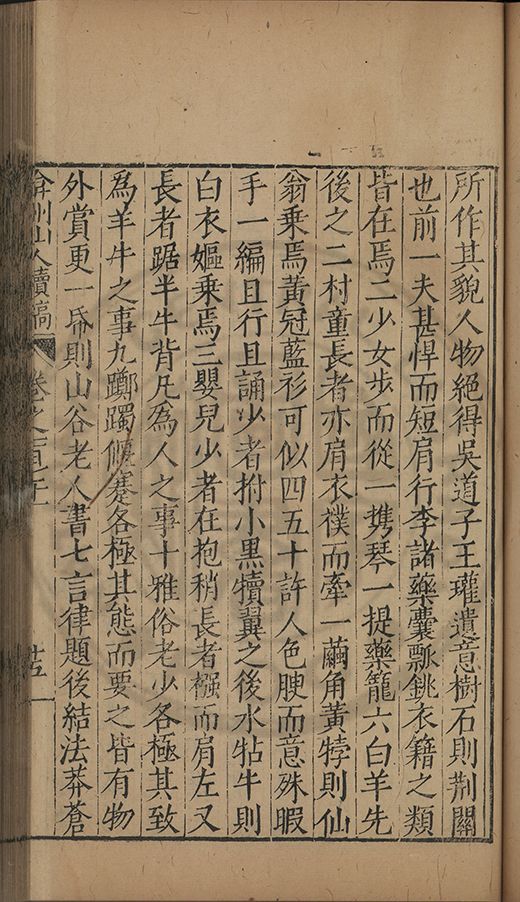 所作其貌人物絕得吳道子王瓘遺意樹石則荆關
也前一夫甚悍而短肩行李諸藥囊瓢銚衣籍之類
皆在焉二少女步而從一携琴一提藥籠六白羊先
後之二村童長者亦肩衣襆而牽一繭角黃犉則仙
翁乘焉黃冠藍衫可似四五十許人色腴而意殊暇
手一編且行且誦少者拊小黑犢翼之後水牯牛則
白衣嫗乘焉三嬰兒少者在抱稍長者襁而肩左又
長者踞半牛背凡為人之事十雅俗老少各極其致
為羊牛之事九躑躅偃蹇各極其態而要之皆有物
外賞更一帋則山谷老人書七言律題後結法莽蒼
弇州山人續稿 卷之一百